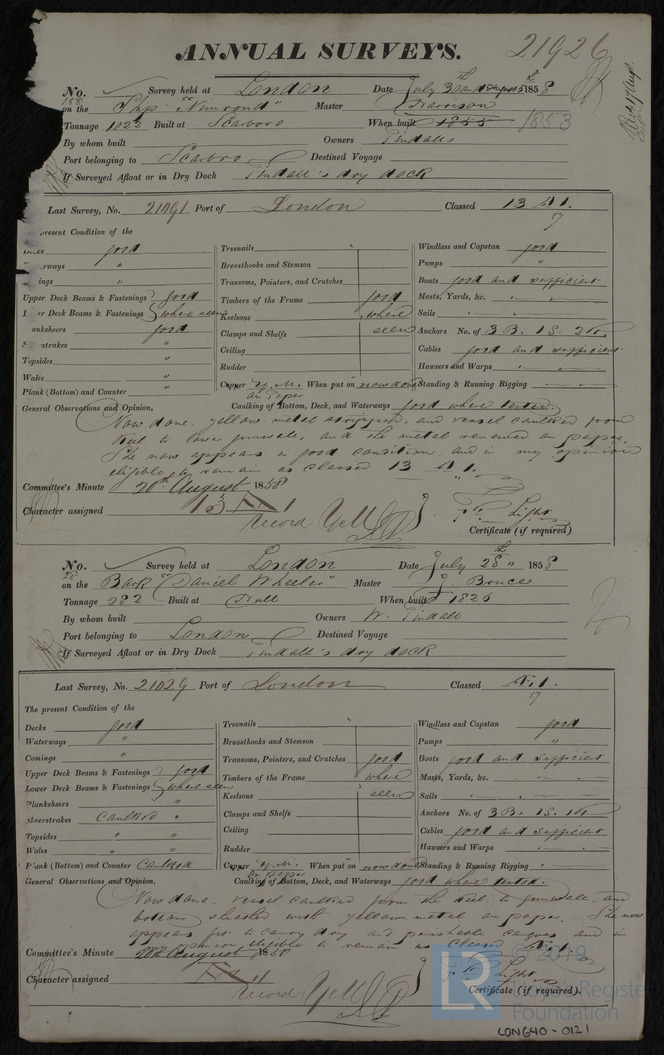 ANNUAL SURVEYS. 21926
No. Survey held at London Date July 30th and August 5th 1858
on the Ship "Nimrod" Master Harrison
Tonnage 1022 Built at Scarboro When built 1855 1853
By whom built Owners Tindalls
Port belonging to Scarboro Destined Voyage
If Surveyed Afloat or in Dry Dock Tindall's dry dock
Last Survey, No. Port of London Classed 13 A 1.
resent Condition of the
good
rways "
ings "
Upper Deck Beams & Fastenings good
er Deck Beams & Fastenings where seen
anksheers good
strakes "
Topsides "
Wales "
Plank (Bottom) and Counter "
Treenails
Breasthooks and Stemson
Transoms, Pointers, and Crutches
Timbers of the Frame good
Keelsons where
Clamps and Shelfs seen
Ceiling
Rudder
Copper Y.M. on paper When put on now done
Windlass and Capstan good
Pumps "
Boats good and sufficient
Masts, Yards, &c.
Sails
Anchors No. of 3 B. 1 S. 2 K.
Cables good and sufficient
Hawsers and Warps
Standing & Running Rigging
General Observations and Opinion, Caulking of Bottom, Deck, and Waterways good where tested
Now done. yellow metal stripped, and vessel caulked from
keel to lower gunwale, and the metal renewed on paper.
She now appears in good condition, and in my opinion
eligible to remain as classed 13 A 1.
Committee's Minute 20th August 1858
Character assigned 13 A 1
Record YM Light
Certificate (if required)
No. Survey held at London Date July 28th 1858
28
on the Bark "Daniel Wheeler" Master J Bruce
Tonnage 282 Built at Hull When built 1826
By whom built Owners W. Tindall
Port belonging to London Destined Voyage
If Surveyed Afloat or in Dry Dock Tindall's dry dock
Last Survey, No. Port of London Classed
The present Condition of the
Decks good
Waterways "
Comings "
Upper Deck Beams & Fastenings good
Lower Deck Beams & Fastenings where seen
Planksheers "
Sheerstrakes Caulked "
Topsides " "
Wales " "
Plank (Bottom) and Counter Caulked
Treenails
Breasthooks and Stemson
Transoms, Pointers, and Crutches good
Timbers of the Frame where
Keelsons seen
Clamps and Shelfs
Ceiling
Rudder
Copper Y.M. on paper When put on now done
Windlass and Capstan good
Pumps "
Boats good and sufficient
Masts, Yards, &c.
Sails
Anchors No. of 3 B. 1 S. 1 K
Cables good and sufficient
Hawsers and Warps
Standing & Running Rigging
General Observations and Opinion, Caulking of Bottom, Deck, and Waterways good where tested.
Now done. vessel caulked from the keel to gunwale, and
bottom sheathed with yellow metal on paper. She now
appears fit to carry dry and perishable cargoes and in
my opinion eligible to remain as Classed
Committee's Minute 20th August 1858
Character assigned
Record YM Light
Certificate (if required).
© 2019
Lloyd's Register
Foundation
LR
LON640-0121